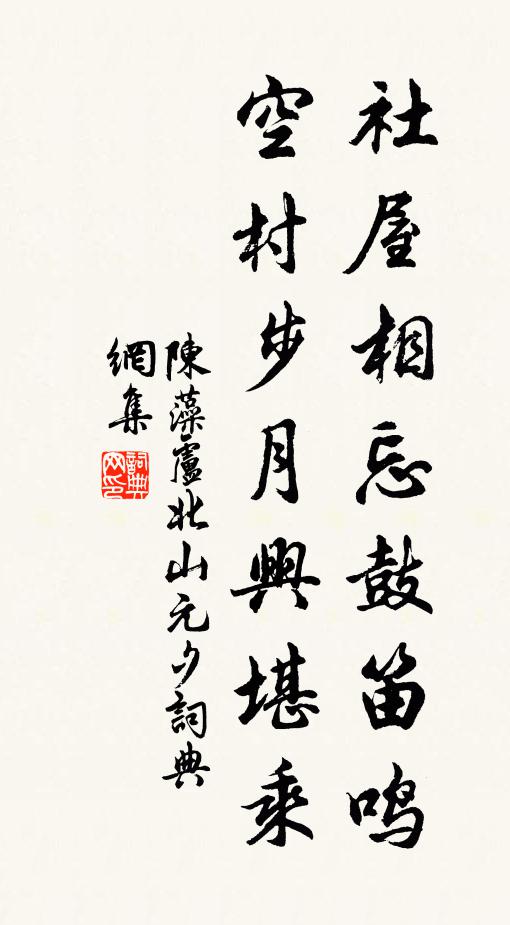 社屋相忘鼓笛鳴
空村步月興堪乘
陳藻盧北山元夕詞典
網集
詞典網印